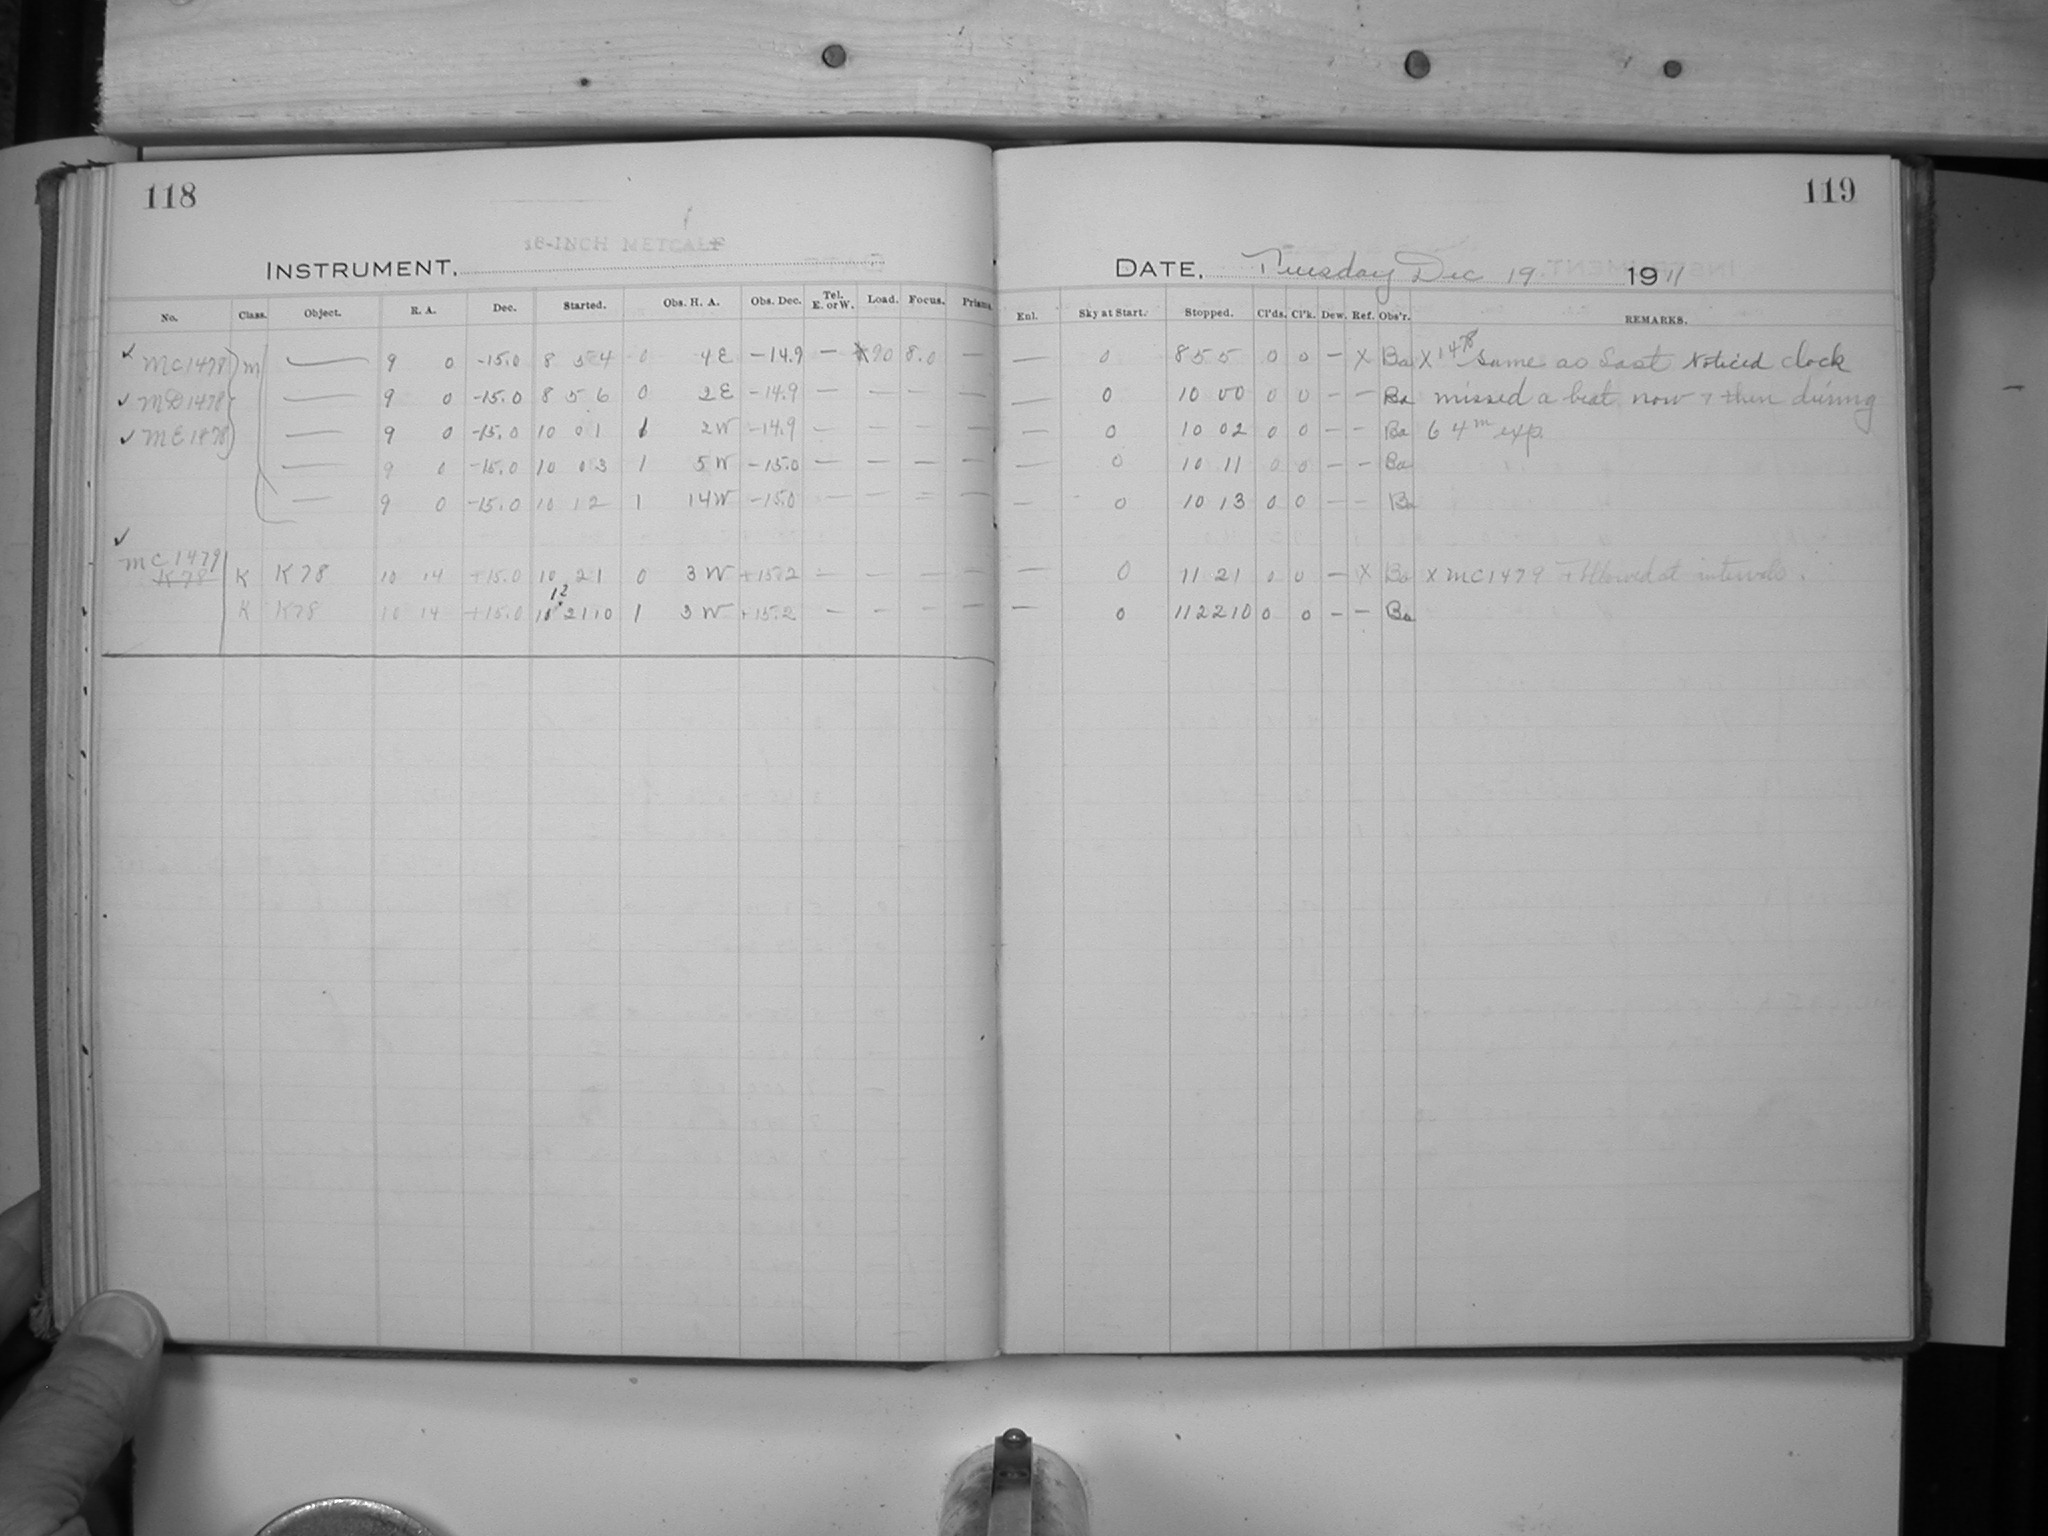 118
16-INCH METCALF
INSTRUMENT.
No. Class. Object. R. A. Dec. Started. Obs. H. A. Obs. Dec. Tel. E. or W. Load. Focus. Prisms.
✓ MC1478 } M — 9 0 -15.0 8 54 0 4E -14.9 — 8.0 —
✓ MD1478 — 9 0 -15.0 8 56 0 2E -14.9 — — — —
✓ ME1478 — 9 0 -15.0 10 01 1 2W -14.9 — — — —
— 9 0 -15.0 10 03 1 5W -15.0 — — — —
— 9 0 -15.0 10 12 1 14W -15.0 — — = —
✓
MC1479
K78 K K78 10 14 +15.0 10 21 0 3W +15.2 — — — —
12
K K78 10 14 +15.0 10 21 10 1 3W +15.2 — — — —
119
DATE. Tuesday Dec 19 1911
Enl. Sky at Start. Stopped. Cl'ds. Cl'k. Dew. Ref. Obs'r. REMARKS.
— 0 8 55 0 0 — X Ba X 1478 Same as last Noticed clock
— 0 10 00 0 0 — — Ba missed a beat now + then during
— 0 10 02 0 0 — — Ba 64m exp.
— 0 10 11 0 0 — — Ba
— 0 10 13 0 0 — — Ba
— 0 11 21 0 0 — X Ba X MC1479 Followed at intervals.
— 0 11 22 10 0 0 — — Ba